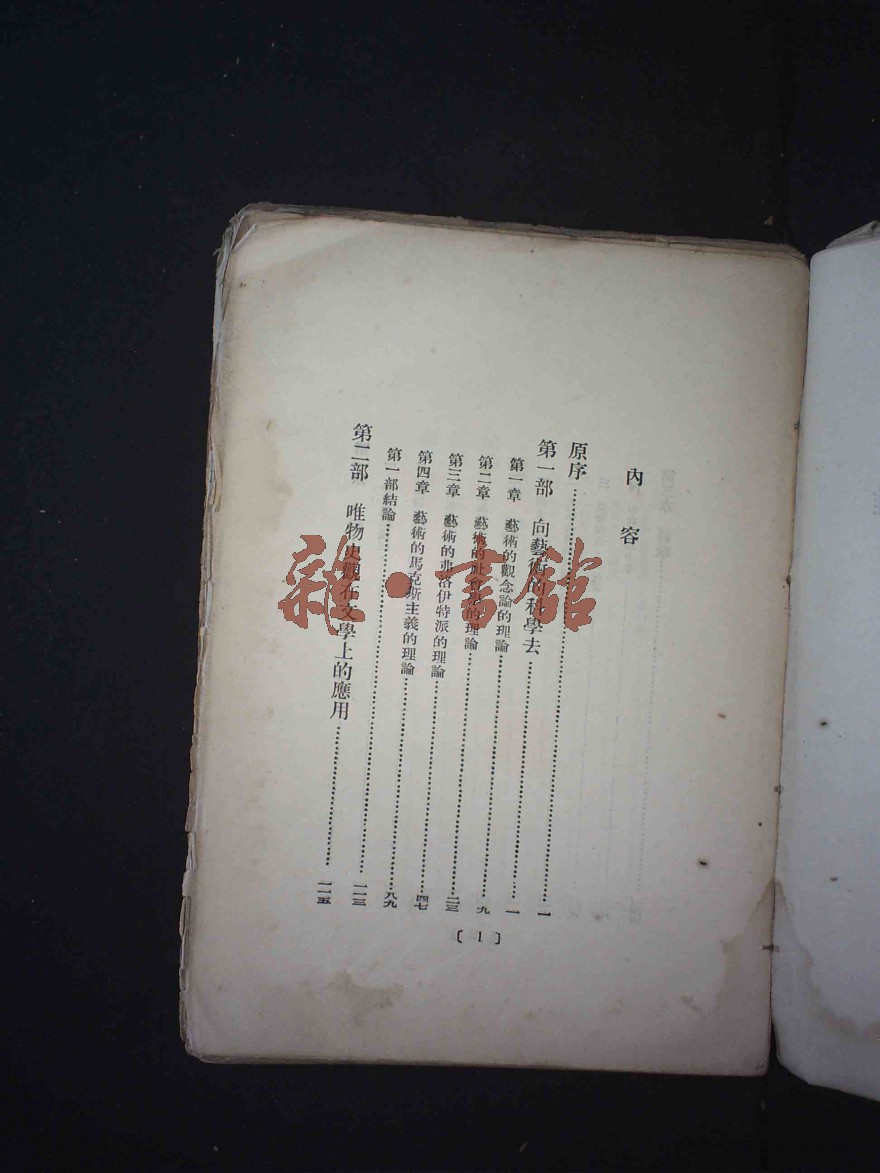 內容
原序……一
第一部 向藝術的科學去……一
第一章 藝術的觀念論的理論……九
第二章 藝術的社會學的理論……二三
第三章 藝術的弗洛伊特派的理論……四七
第四章 藝術的馬克斯主義的理論……八九
第一部結論……一二三
第二部 唯物史觀在文學上的應用……一二五
〔1〕
雜·書館